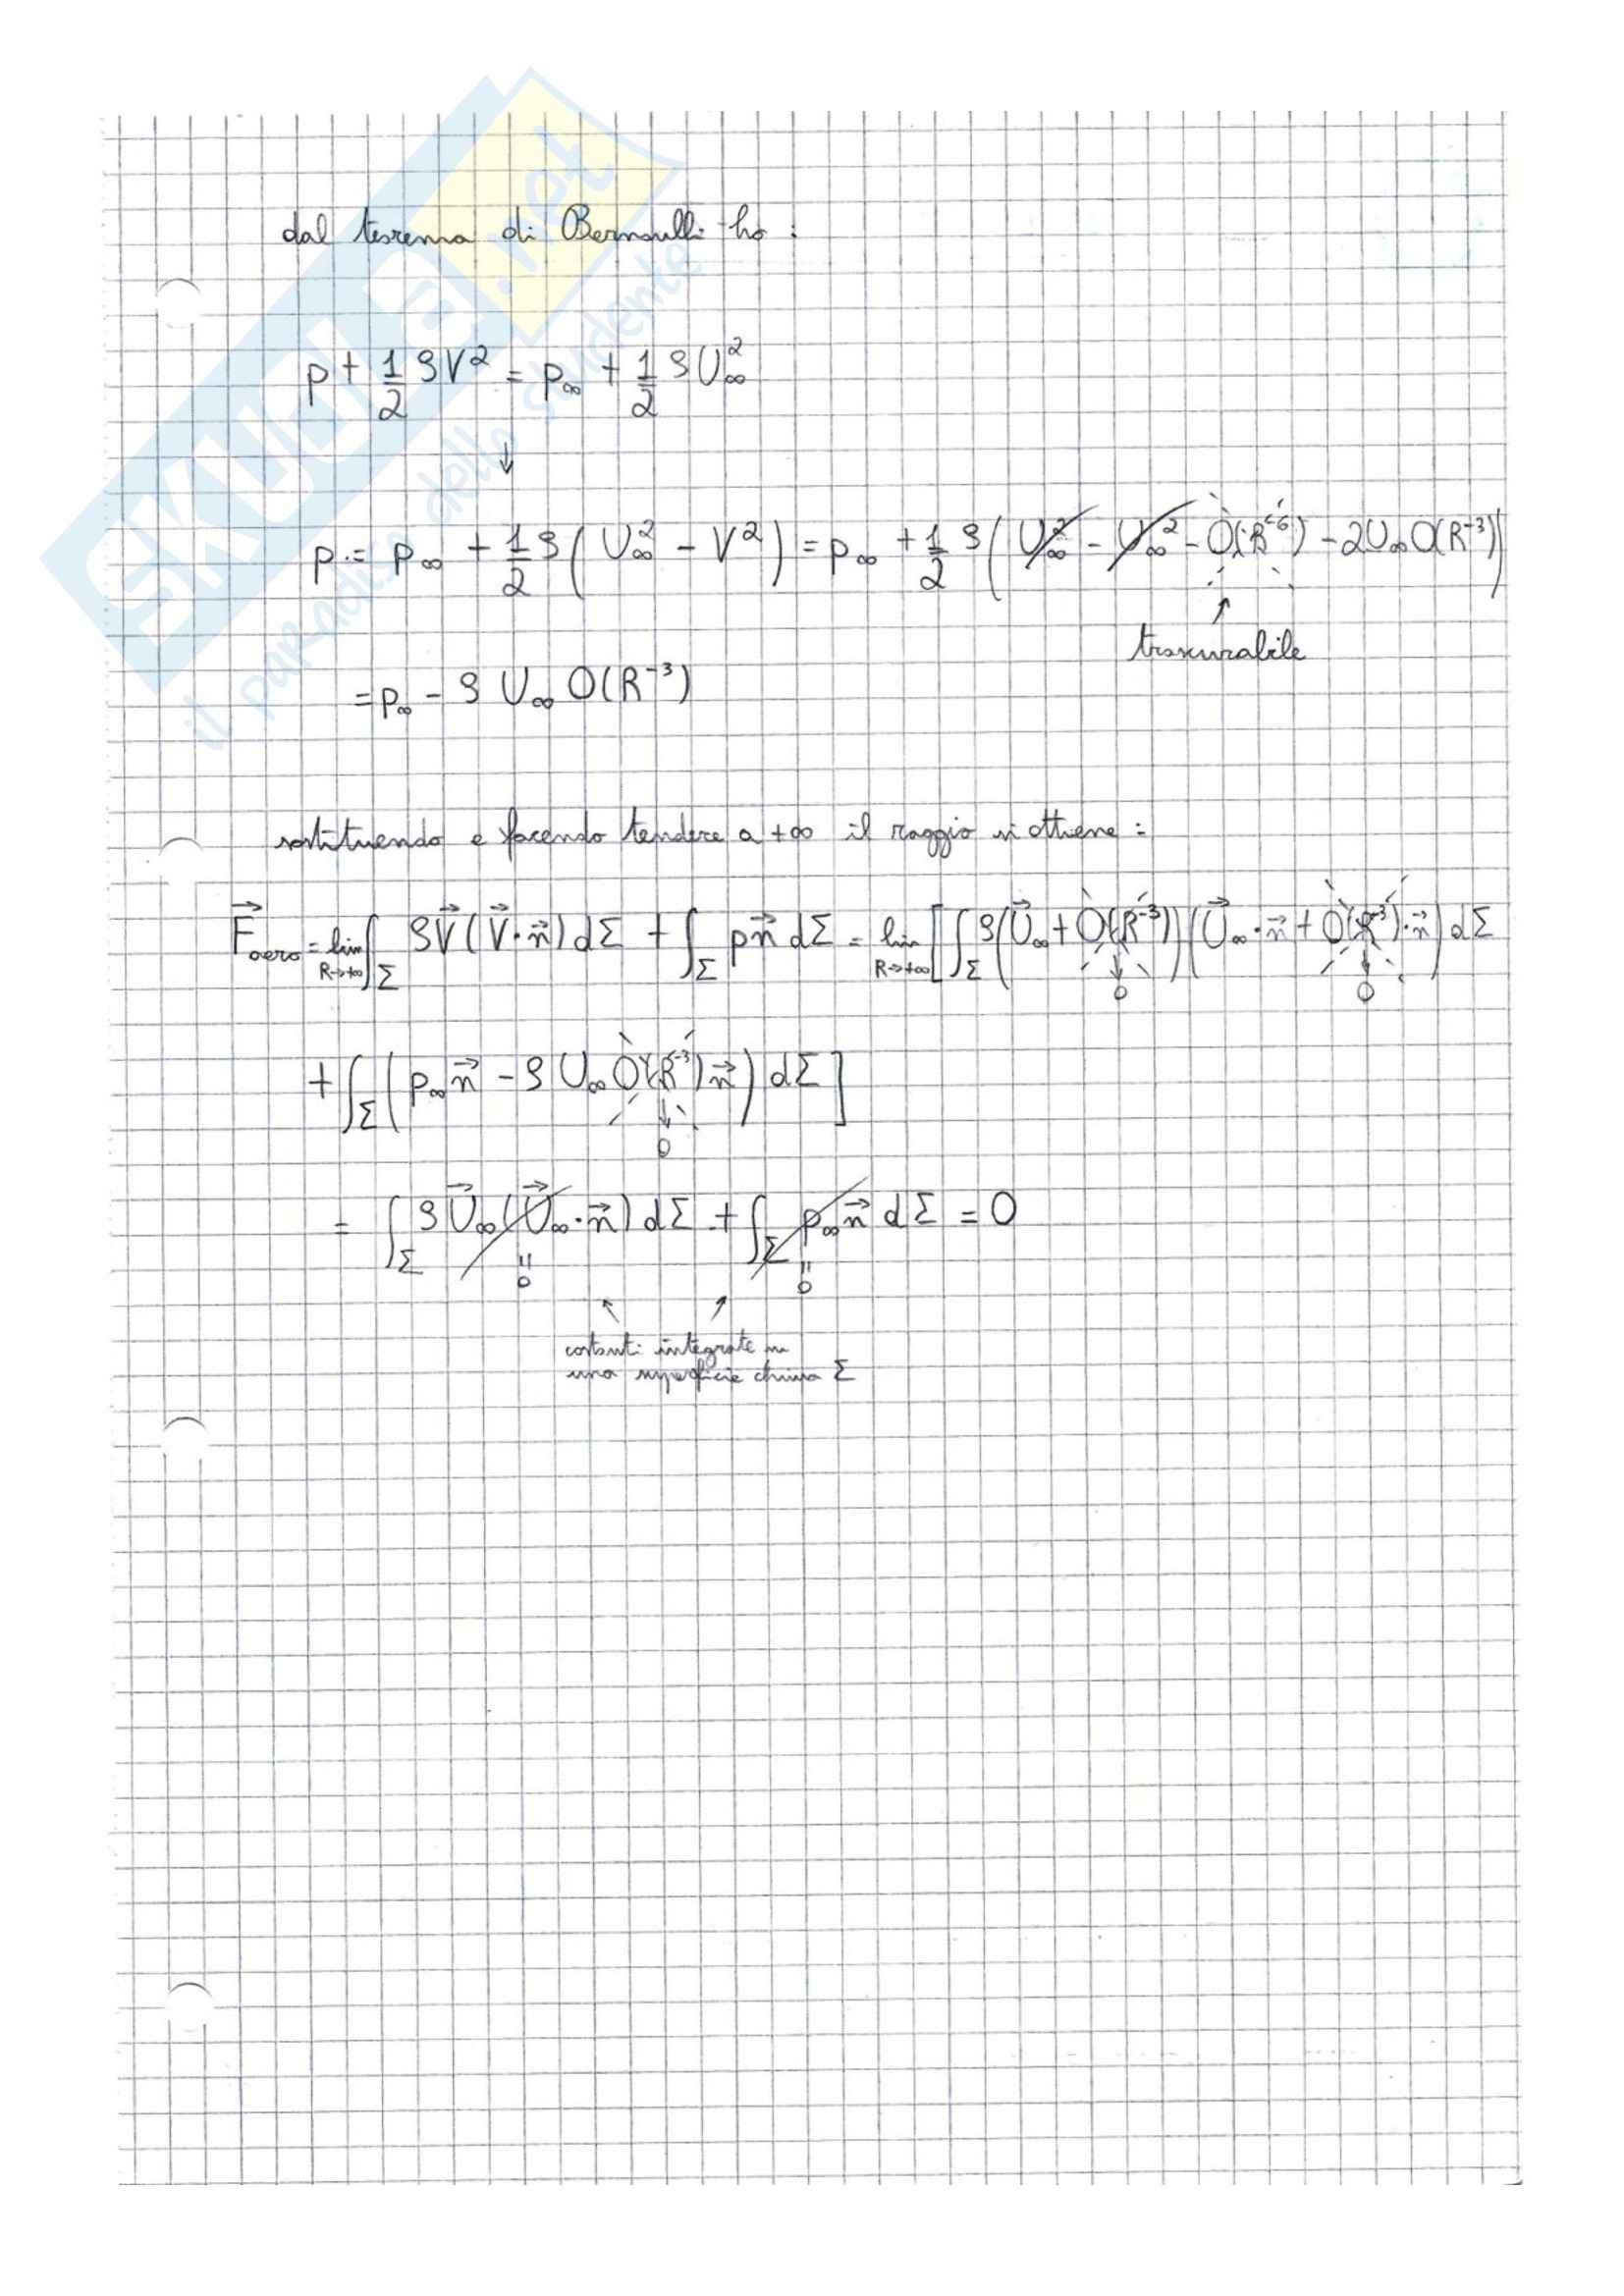 SKUOLA.net
il paradiso dello studente
dal teorema di Bernoulli ho :
p + 1/2 ρV² = p∞ + 1/2 ρU∞²
↓
p = p∞ + 1/2 ρ( U∞² - V² ) = p∞ + 1/2 ρ( U∞² - U∞² - O(R⁻⁶) - 2U∞ O(R⁻³))
↑
trascurabile
= p∞ - ρ U∞ O(R⁻³)
sostituendo e facendo tendere a +∞ il raggio si ottiene :
F⃗aero = lim R→+∞ ∫Σ ρV⃗(V⃗·n⃗) dΣ + ∫Σ pn⃗ dΣ = lim R→+∞ [ ∫Σ ρ(U⃗∞ + O(R⁻³))(U⃗∞·n⃗ + O(R⁻³)·n⃗) dΣ
↓ 0 ↓ 0
+ ∫Σ ( p∞n⃗ - ρ U∞ O(R⁻³)n⃗ ) dΣ ]
↓ 0
= ∫Σ ρU⃗∞(U⃗∞·n⃗) dΣ + ∫Σ p∞n⃗ dΣ = 0
= 0 = 0
costanti integrate su
una superficie chiusa Σ